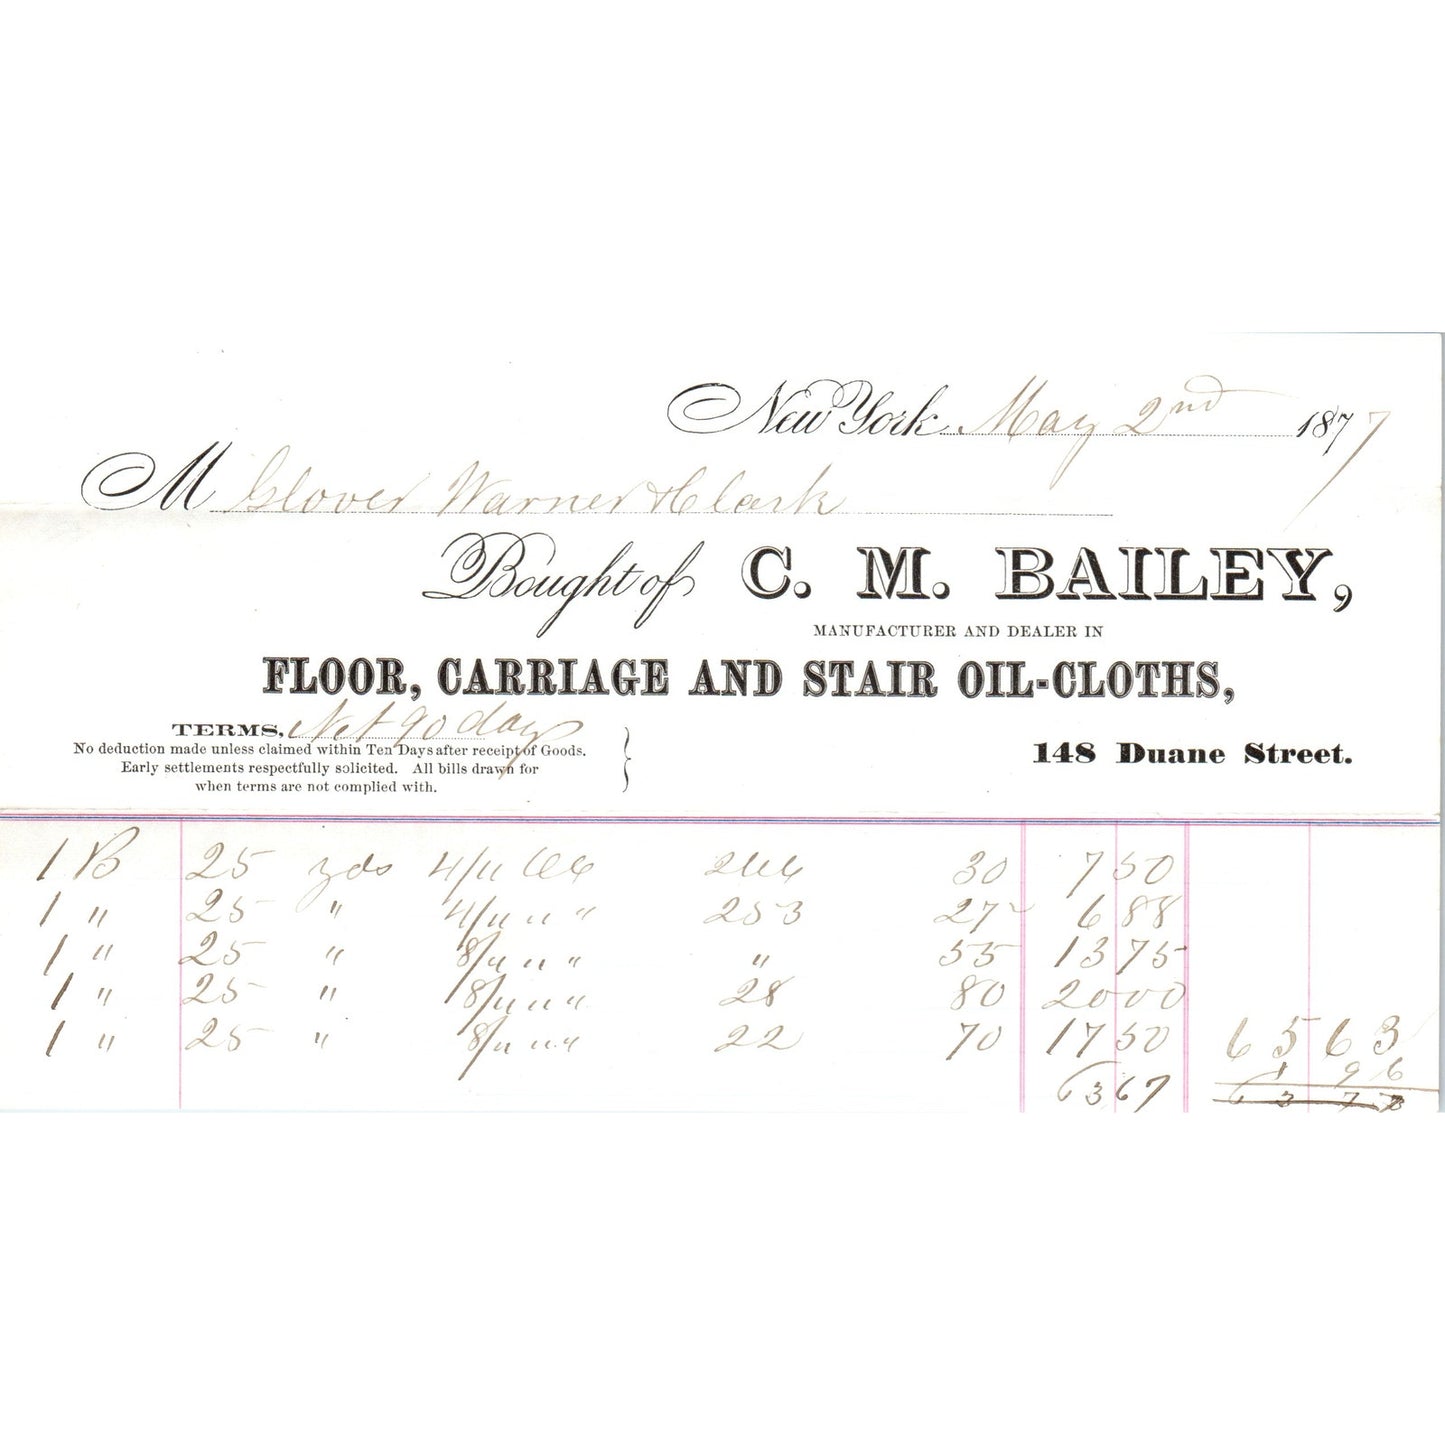 New York May 2nd 1877
M Glover Warner & Clark
Bought of C. M. BAILEY,
MANUFACTURER AND DEALER IN
FLOOR, CARRIAGE AND STAIR OIL-CLOTHS,
TERMS, Net 90 days
No deduction made unless claimed within Ten Days after receipt of Goods.
Early settlements respectfully solicited. All bills drawn for
when terms are not complied with.
148 Duane Street.
1 B 25 yds 4/4 266 30 7 50
1 " 25 " 4/4 " " 253 27 6 88
1 " 25 " 8/4 " " " 55 13 75
1 " 25 " 8/4 " " 28 80 20 00
1 " 25 " 8/4 " " 22 70 17 50 65 63
1 96
63 67